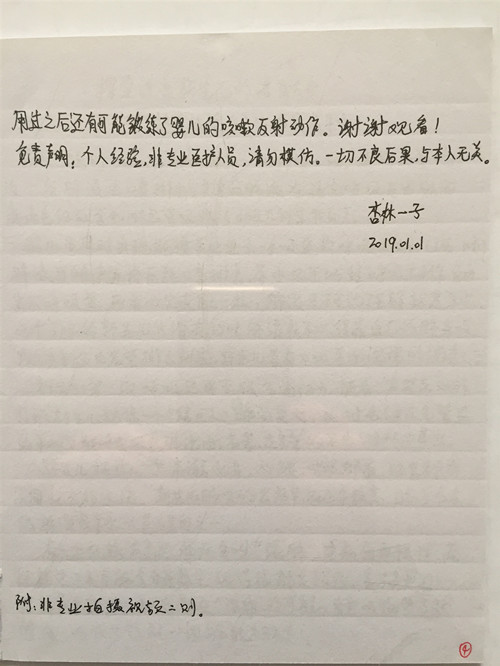 用过之后还有可能锻练了婴儿的咳嗽反射动作。谢谢观看！
免责声明：个人经验，非专业医护人员，请勿模仿。一切不良后果，与本人无关。
杏林一子
2019.01.01
附：非专业拍摄视频二则。
4